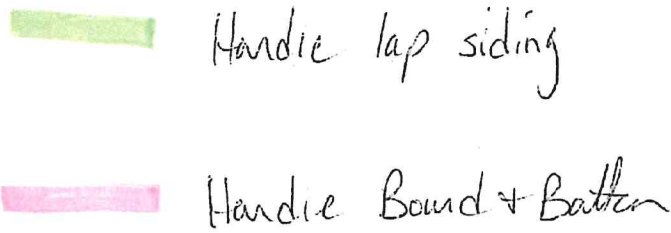 Hardie lap siding
Hardie Board + Batten